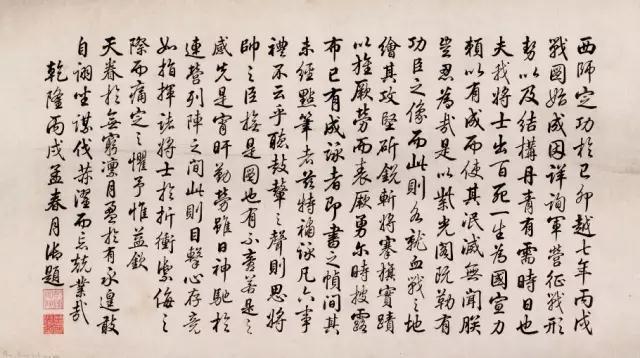 西師定功於己卯越七年丙戌
戰圖始成因詳詢軍營征戰形
勢以及結構丹青有需時日也
夫我將士出百死一生為國宣力
賴以有成而使其泯滅無聞朕
豈忍為哉是以紫光閣既勒有
功臣之像而此則各就血戰之地
繪其攻堅斫銳斬將搴旗實蹟
以旌厥勞而表厥勇爾時披露
布已有成詠者即書之幀間其
未經點筆者茲特補詠凡六事
禮不云乎聽鼓鼙之聲則思將
帥之臣披是圖也有不啻若是之
感先是宵旰勤勞雖日神馳於
連營列陣之間此則目擊心存竟
如指揮諸將士於折衝禦侮之
際而痛定之懼予惟益欽
天眷於無窮凜月盈於有永遑敢
自詡坐謀伐濯而忘兢業哉
乾隆丙戌孟春月御題